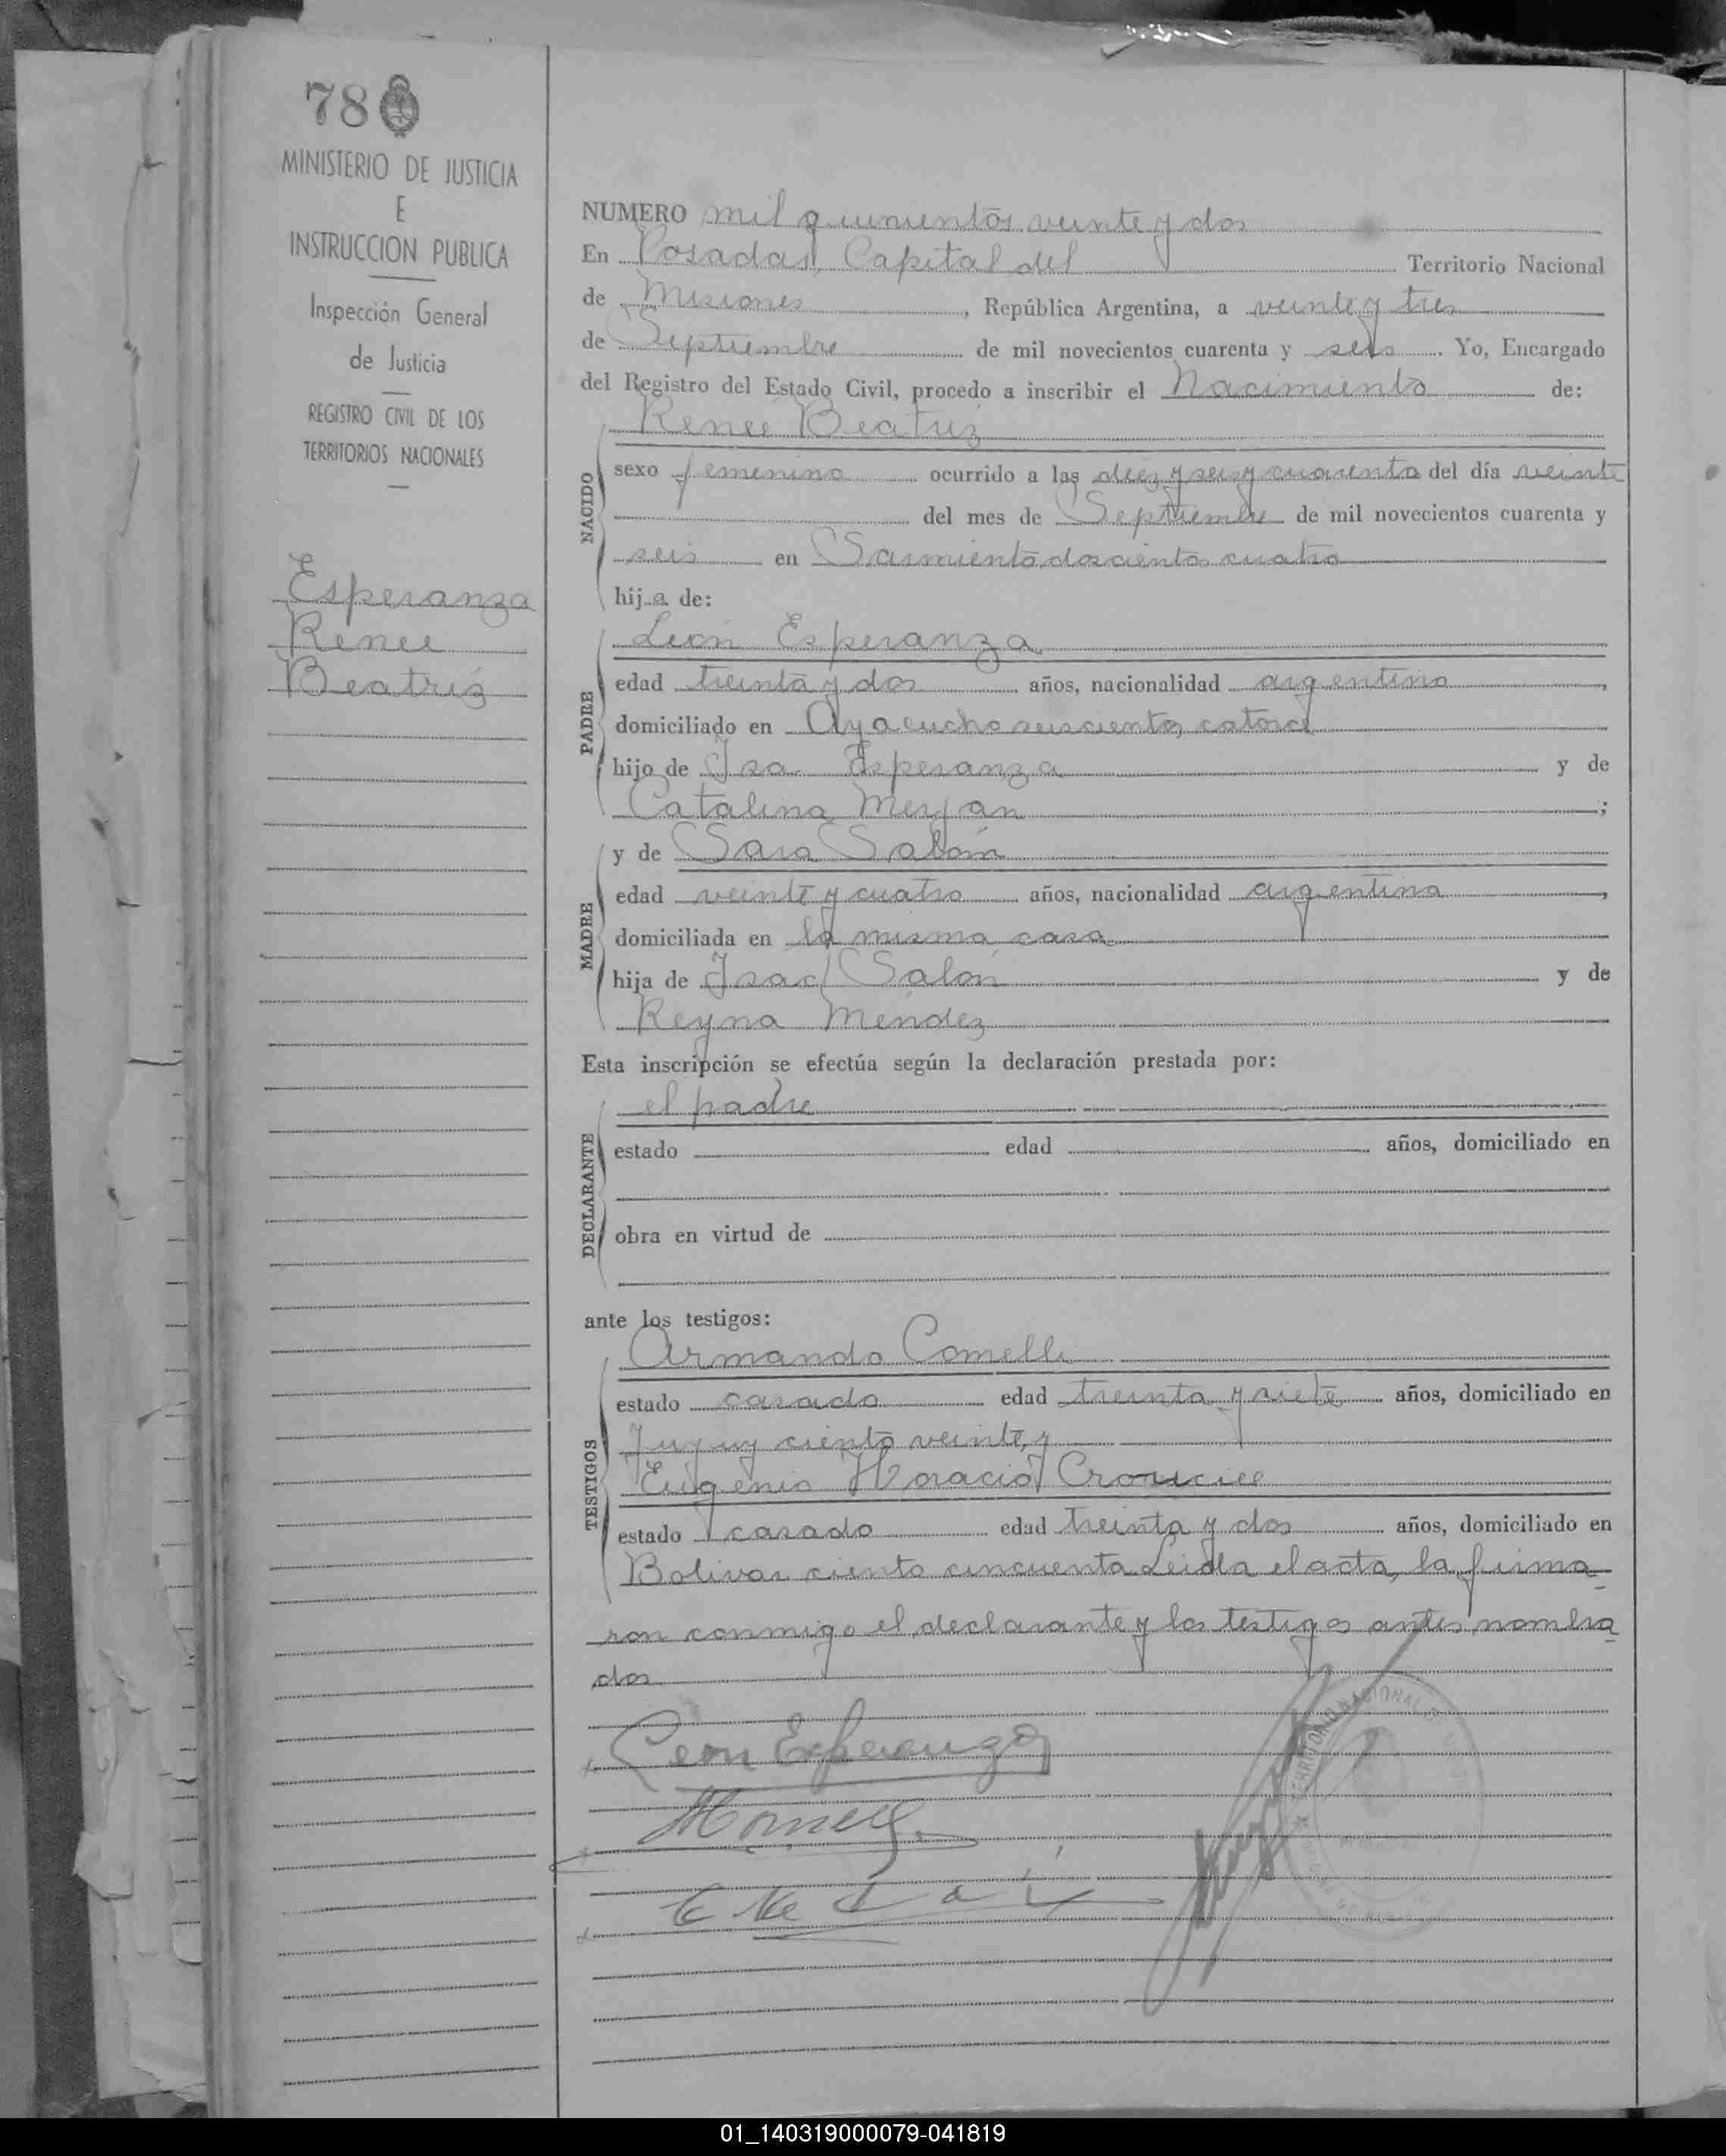 78
MINISTERIO DE JUSTICIA
E
INSTRUCCION PUBLICA
Inspección General
de Justicia
REGISTRO CIVIL DE LOS
TERRITORIOS NACIONALES
Esperanza
Renee
Beatriz
NUMERO mil quinientos veinte y dos
En Posadas, Capital del Territorio Nacional
de Misiones, República Argentina, a veinte y tres
de Septiembre de mil novecientos cuarenta y seis. Yo, Encargado
del Registro del Estado Civil, procedo a inscribir el Nacimiento de:
Renee Beatriz
NACIDO
sexo femenino ocurrido a las diez y seis y cuarenta del día veinte
del mes de Septiembre de mil novecientos cuarenta y
seis en Sarmiento doscientos cuatro
hija de:
PADRE
León Esperanza
edad treinta y dos años, nacionalidad argentina,
domiciliado en Ayacucho seiscientos catorce
hijo de Isa Esperanza y de
Catalina;
MADRE
y de Sara Salón
edad veinte y cuatro años, nacionalidad argentina,
domiciliada en la misma casa
hija de Isac Salón y de
Reyna Méndez
Esta inscripción se efectúa según la declaración prestada por:
DECLARANTE
el padre
estado edad años, domiciliado en
obra en virtud de
ante los testigos:
TESTIGOS
Armando Comelli
estado casado edad treinta y siete años, domiciliado en
Jujuy ciento veinte, y
Eugenio Horacio
estado casado edad treinta y dos años, domiciliado en
Bolivar ciento cincuenta Leida el acta, la firma
ron conmigo el declarante y los testigos antes nombra
dos
Leon Esperanza
01_140319000079-041819